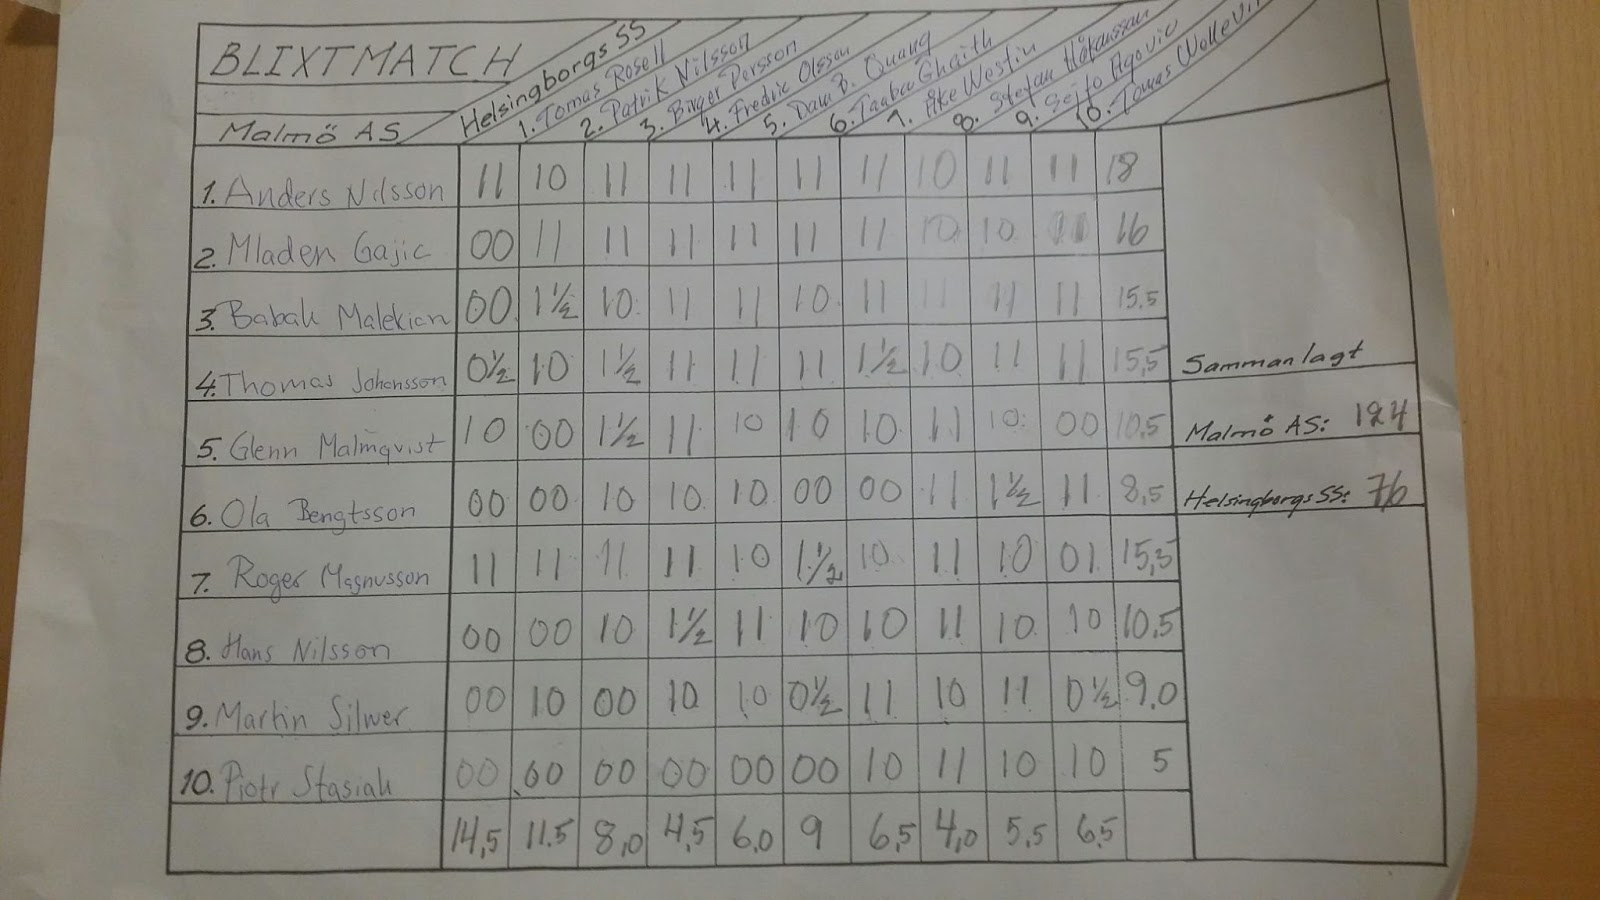 BLIXTMATCH
Helsingborgs SS
1. Tomas Rosell
2. Patrik Nilsson
3. Birger Persson
4. Fredric Olsson
5. Dam B. Quang
6. Taabao Ghaith
7. Åke Westin
8. Stefan Håkansson
9. Sejfo Agovic
10. Tomas
Malmö AS
1. Anders Nilsson 11 10 11 11 11 11 11 10 11 11 18
2. Mladen Gajic 00 11 11 11 11 11 11 10 10 11 16
3. Babak Malekian 00 1½ 10 11 11 10 11 11 11 11 15.5
4. Thomas Johansson 0½ 10 1½ 11 11 11 1½ 10 11 11 15,5
Sammanlagt
5. Glenn Malmqvist 10 00 1½ 11 10 10 10 11 10 00 10,5
Malmö AS: 124
6. Ola Bengtsson 00 00 10 10 10 00 00 11 1½ 11 8,5
Helsingborgs SS: 76
7. Roger Magnusson 11 11 11 11 10 1½ 10 11 10 01 15,5
8. Hans Nilsson 00 00 10 1½ 11 10 10 11 10 10 10,5
9. Martin Silwer 00 10 00 10 10 0½ 11 10 11 0½ 9,0
10. Piotr Stasiak 00 00 00 00 00 00 10 11 10 10 5
14,5 11.5 8,0 4,5 6,0 9 6,5 4,0 5,5 6,5